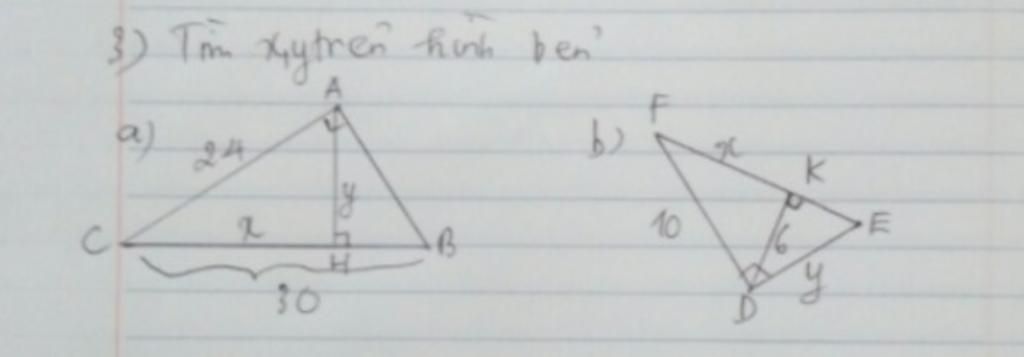 3) Tìm x,y trên hình bên
A
a)
24
y
C
x
B
H
30
F
b)
x
K
E
10
6
y
D